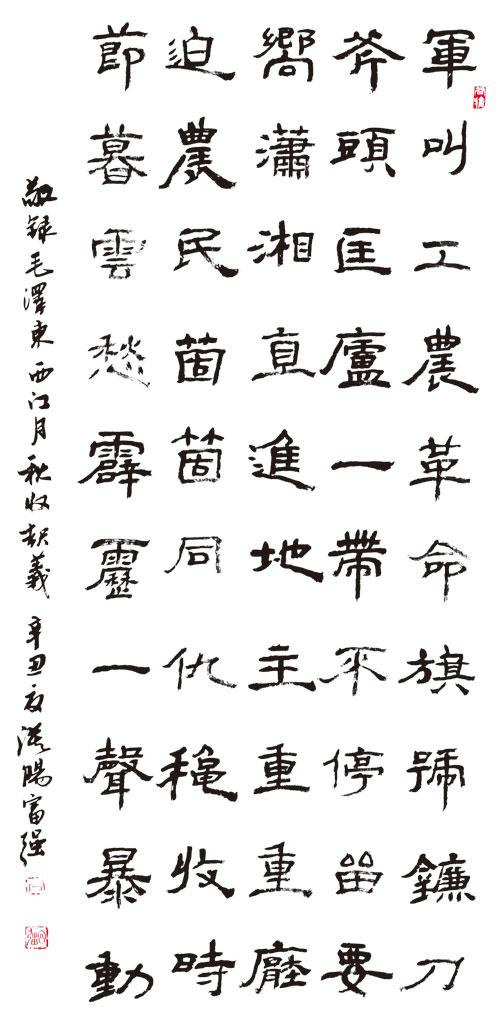 軍叫工農革命旗號鐮刀
斧頭匡廬一帶不停留要
嚮瀟湘直進地主重重壓
迫農民箇箇同仇穐收時
節暮雲愁霹靂一聲暴動
敬録毛澤東西江月秋收起義 辛丑夏陽富强